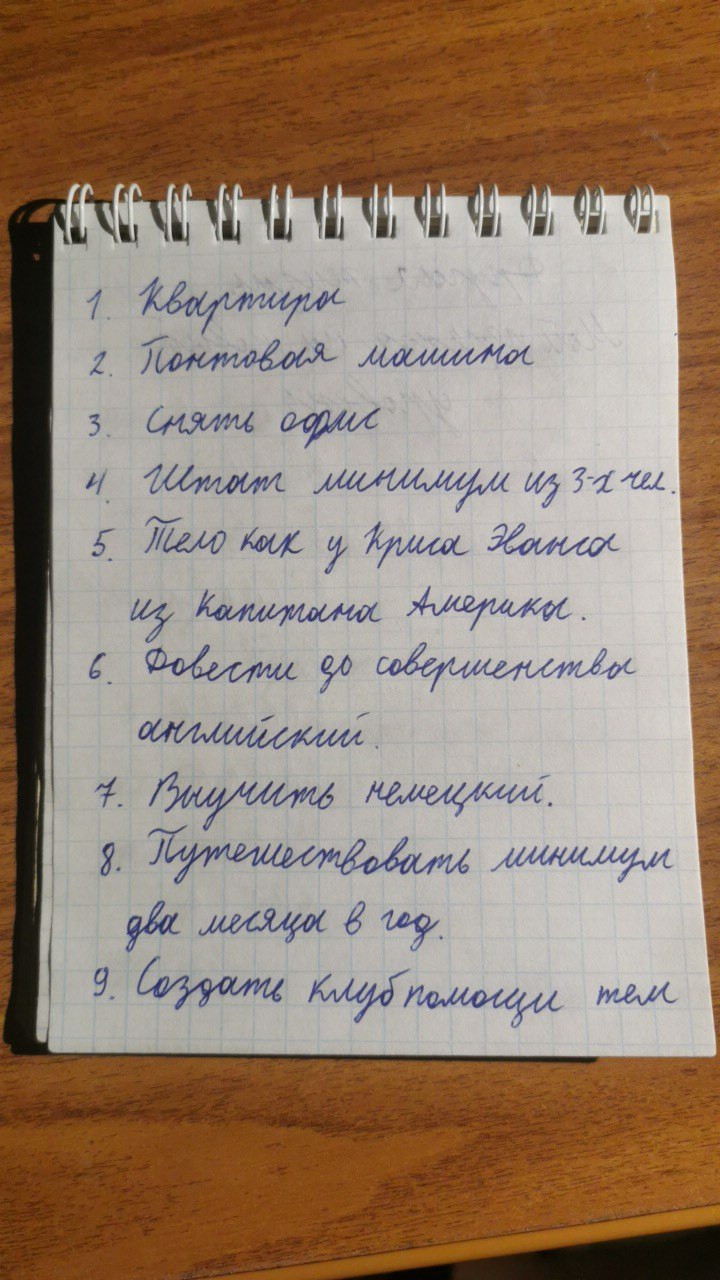 1. Квартира
2. Понтовая машина
3. Снять офис
4. Штат минимум из 3-х чел.
5. Тело как у Криса Эванса
из Капитана Америки.
6. Довести до совершенствы
английский.
7. Выучить немецкий.
8. Путешествовать минимум
два месяца в год.
9. Создать клуб помощи тем